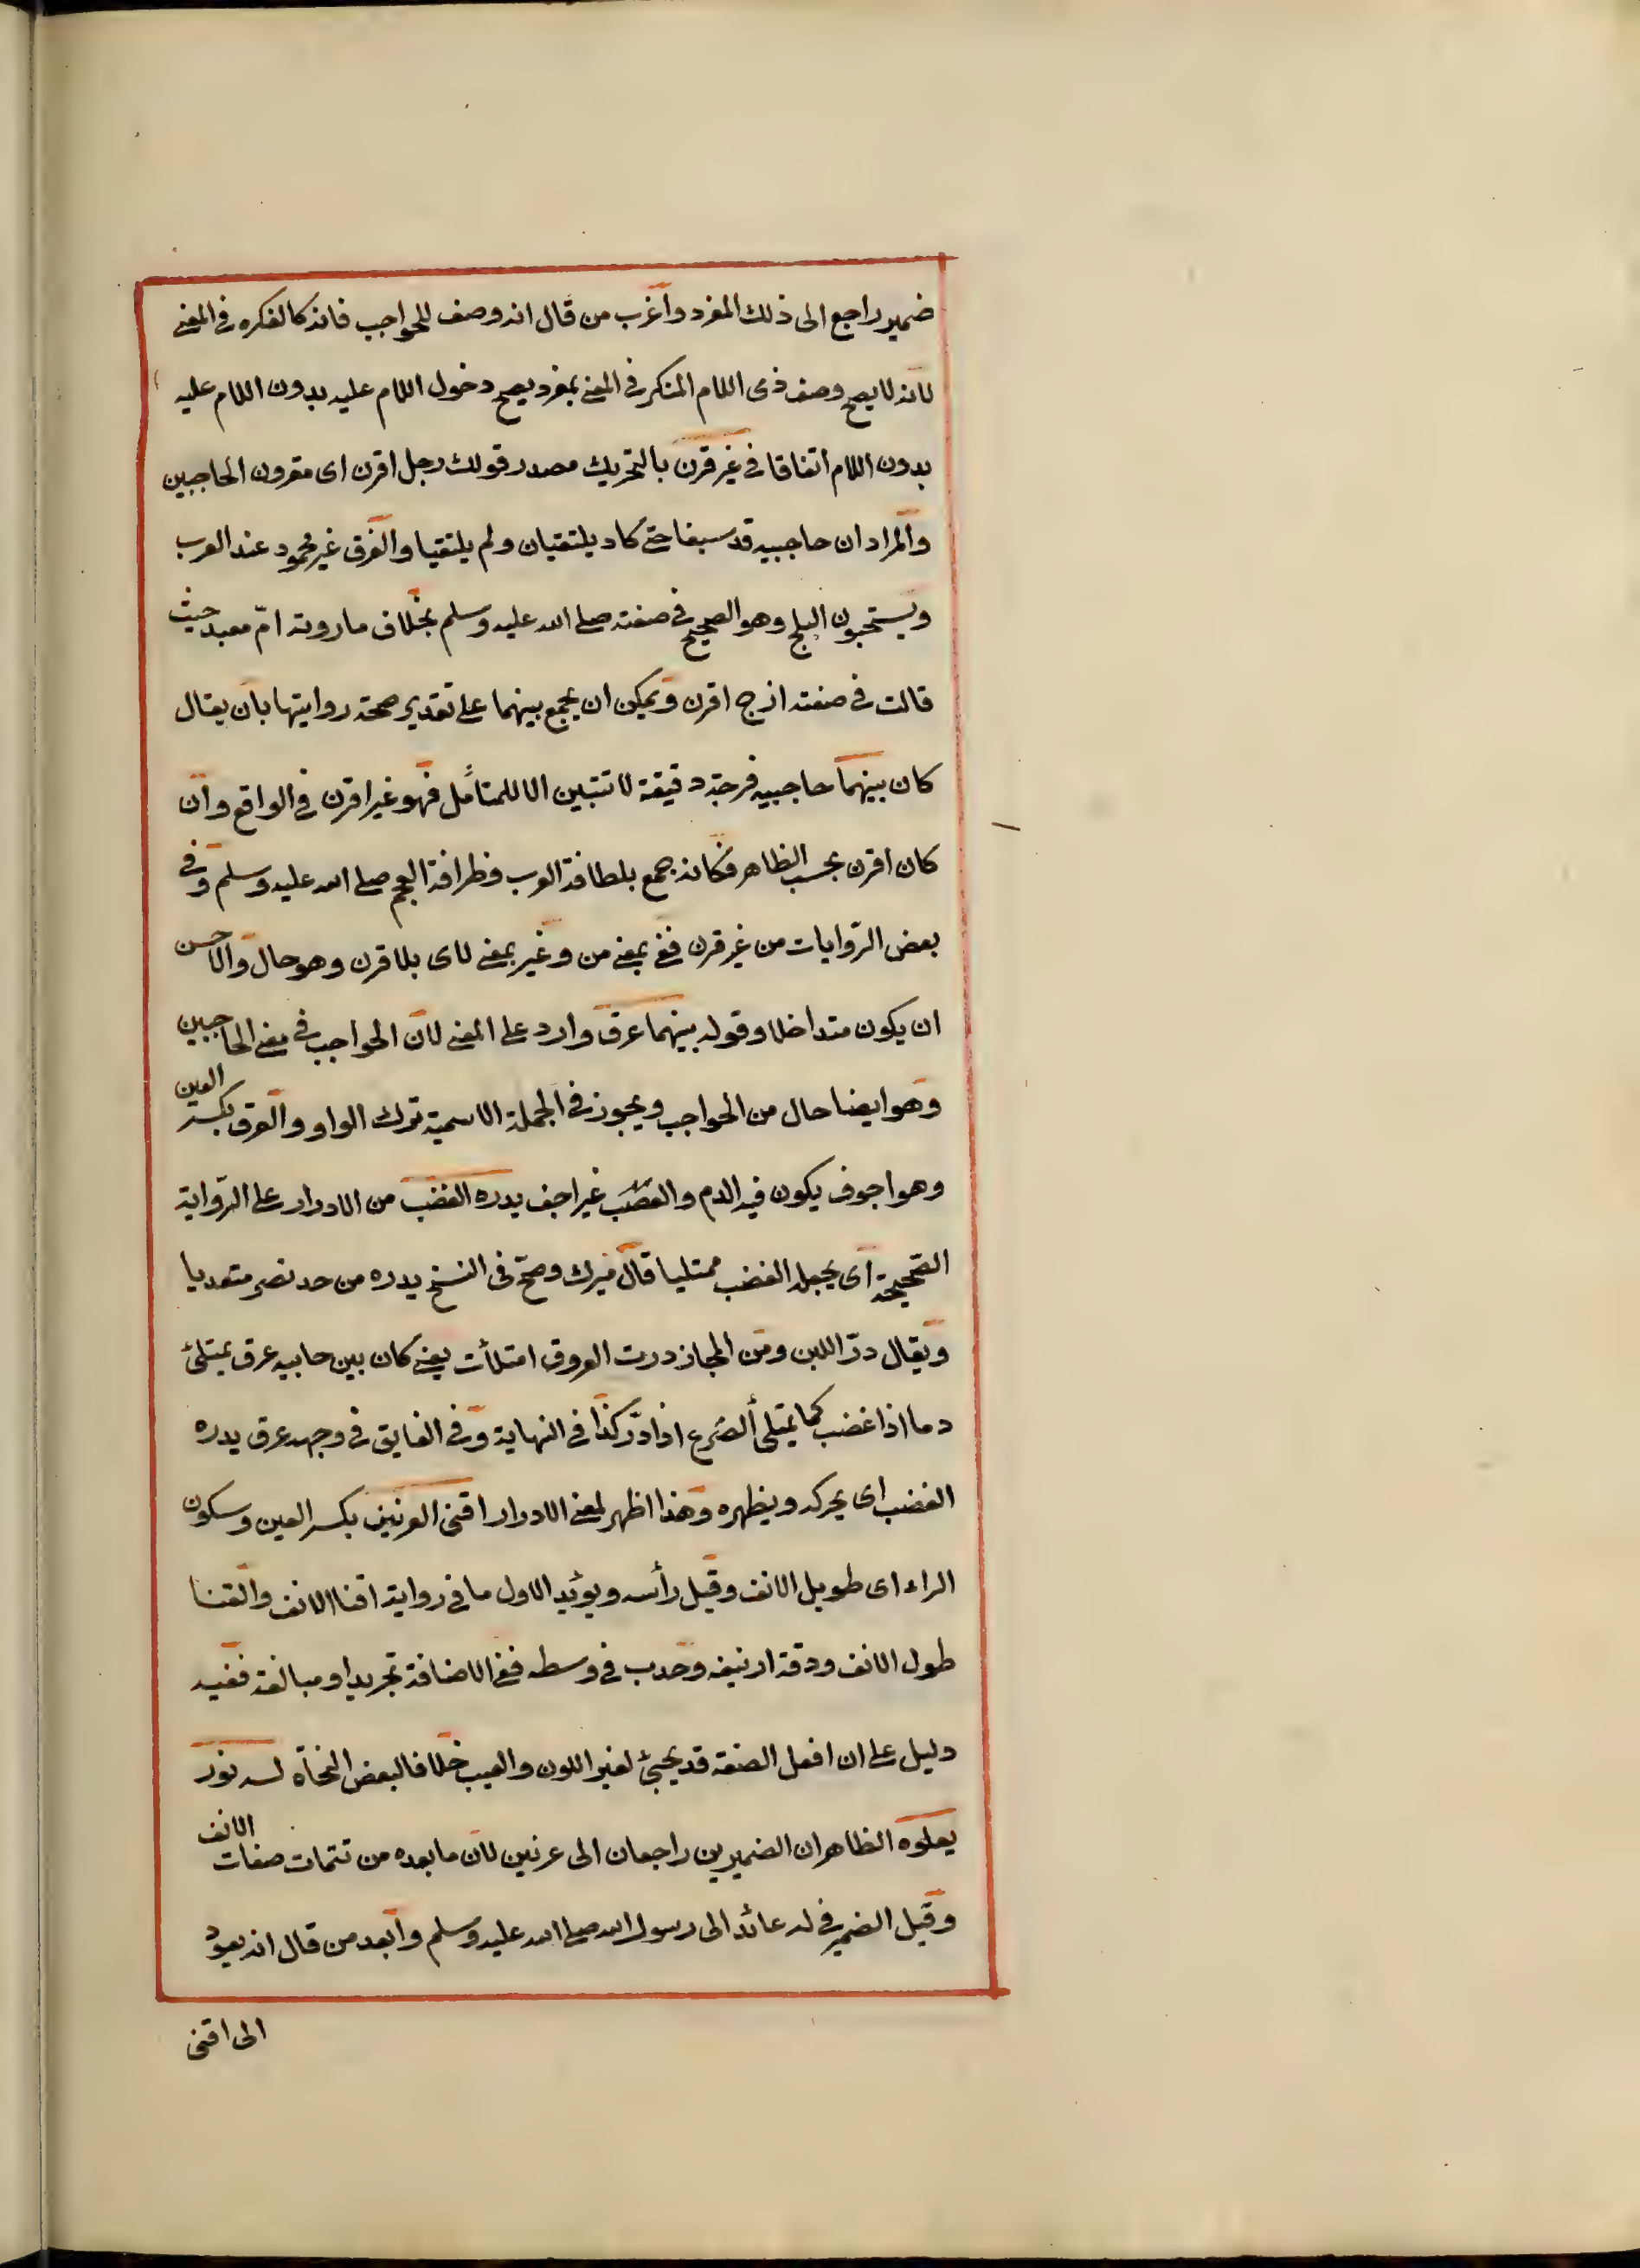 ضمير راجع الى ذلك المفرد واغرب من قال انه وصف للحواجب فانه كالفكره في المعنى
لانه لا يصح وصف ذى اللام المنكر في المعنى بمفرد يصح دخول اللام عليه بدون اللام عليه
بدون اللام اتفاقا في غير قرن بالتحريك مصدر قولك رجل اقرن اى مقرون الحاجبين
والمراد ان حاجبيه قد سبغا حتى كاد يلتقيان ولم يلتقيا والقرق غير محمود عند العرب
ويستحبون البلج وهو الصحيح في صفته صلى الله عليه وسلم بخلاف ما روته امّ معبد حيث
قالت في صفته ازج اقرن ويمكن ان يجمع بينهما على تقدير صحة روايتها بان يقال
كان بينهما حاجبيه فرجة دقيقة لا تتبين الا للمتأمل فهو غير اقرن في الواقع وان
كان اقرن بحسب الظاهر فكانه جمع بلطافة العرب وظرافة العجم صلى الله عليه وسلم وفي
بعض الرّوايات من غير قرن ففي بمعنى من وغير بمعنى لا اى بلا قرن وهو حال والاحسن
ان يكون متداخلا وقوله بينهما عرق وارد على المعنى لان الحواجب في معنى الحاجبين
وهو ايضا حال من الحواجب ويجوز في الجملة الاسمية ترك الواو والعرق بكسر العين
وهو اجوف يكون فيه الدم والعصب غير اجف يدره الغضب من الادرار على الرّواية
الصّحيحة اى يجعله الغضب ممتليا قال ميرك وصحّ في النسخ يدره من حد نصر متعديا
ويقال درّ اللبن ومن المجاز درت العروق امتلأت يعني كان بين حابيه عرق يمتلئ
دما اذا غضب كما يمتلى الضرع اذا درّ كذا في النهاية وفي الفايق في وجهه عرق يدره
الغضب اى يحركه ويظهره وهذا اظهر لمعنى الادرار اقنى العرنين بكسر العين وسكون
الراء اى طويل الانف وقيل رأسه ويؤيد الاول ما في رواية اقنا الانف والقنا
طول الانف ودقة ارنيفه وحدب في وسطه ففي الاضافة تجريد او مبالغة ففيه
دليل على ان افعل الصفة قد يجيئ لغير اللون والعيب خلافا لبعض النحاة له نور
يعلوه الظاهر ان الضميرين راجعان الى عرنين لان ما بعده من تتمات صفات الانف
وقيل الضمير في له عائد الى رسول الله صلى الله عليه وسلم وابعد من قال انه يعود
الى اقنى